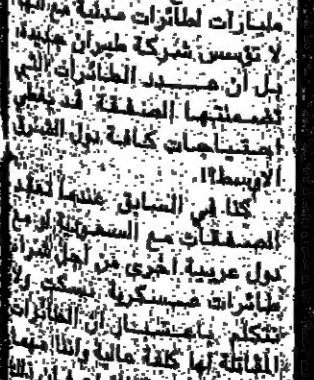 مليارات لطائرات مدنية مع انها
لا تؤسس شركة طيران جديدة،
بل ان عدد الطائرات التي
تضمنتها الصفقة قد يغطي
احتياجات كافة دول الشرق
الأوسط!!.
كنا في السابق عندما تعقد
الصفقات مع السعودية او مع
دول عربية اخرى من اجل شراء
طائرات عسكرية نسكت ولا
نتكلم باعتبار ان الطائرات
المقاتلة لها كلفة عالية واننا مهما